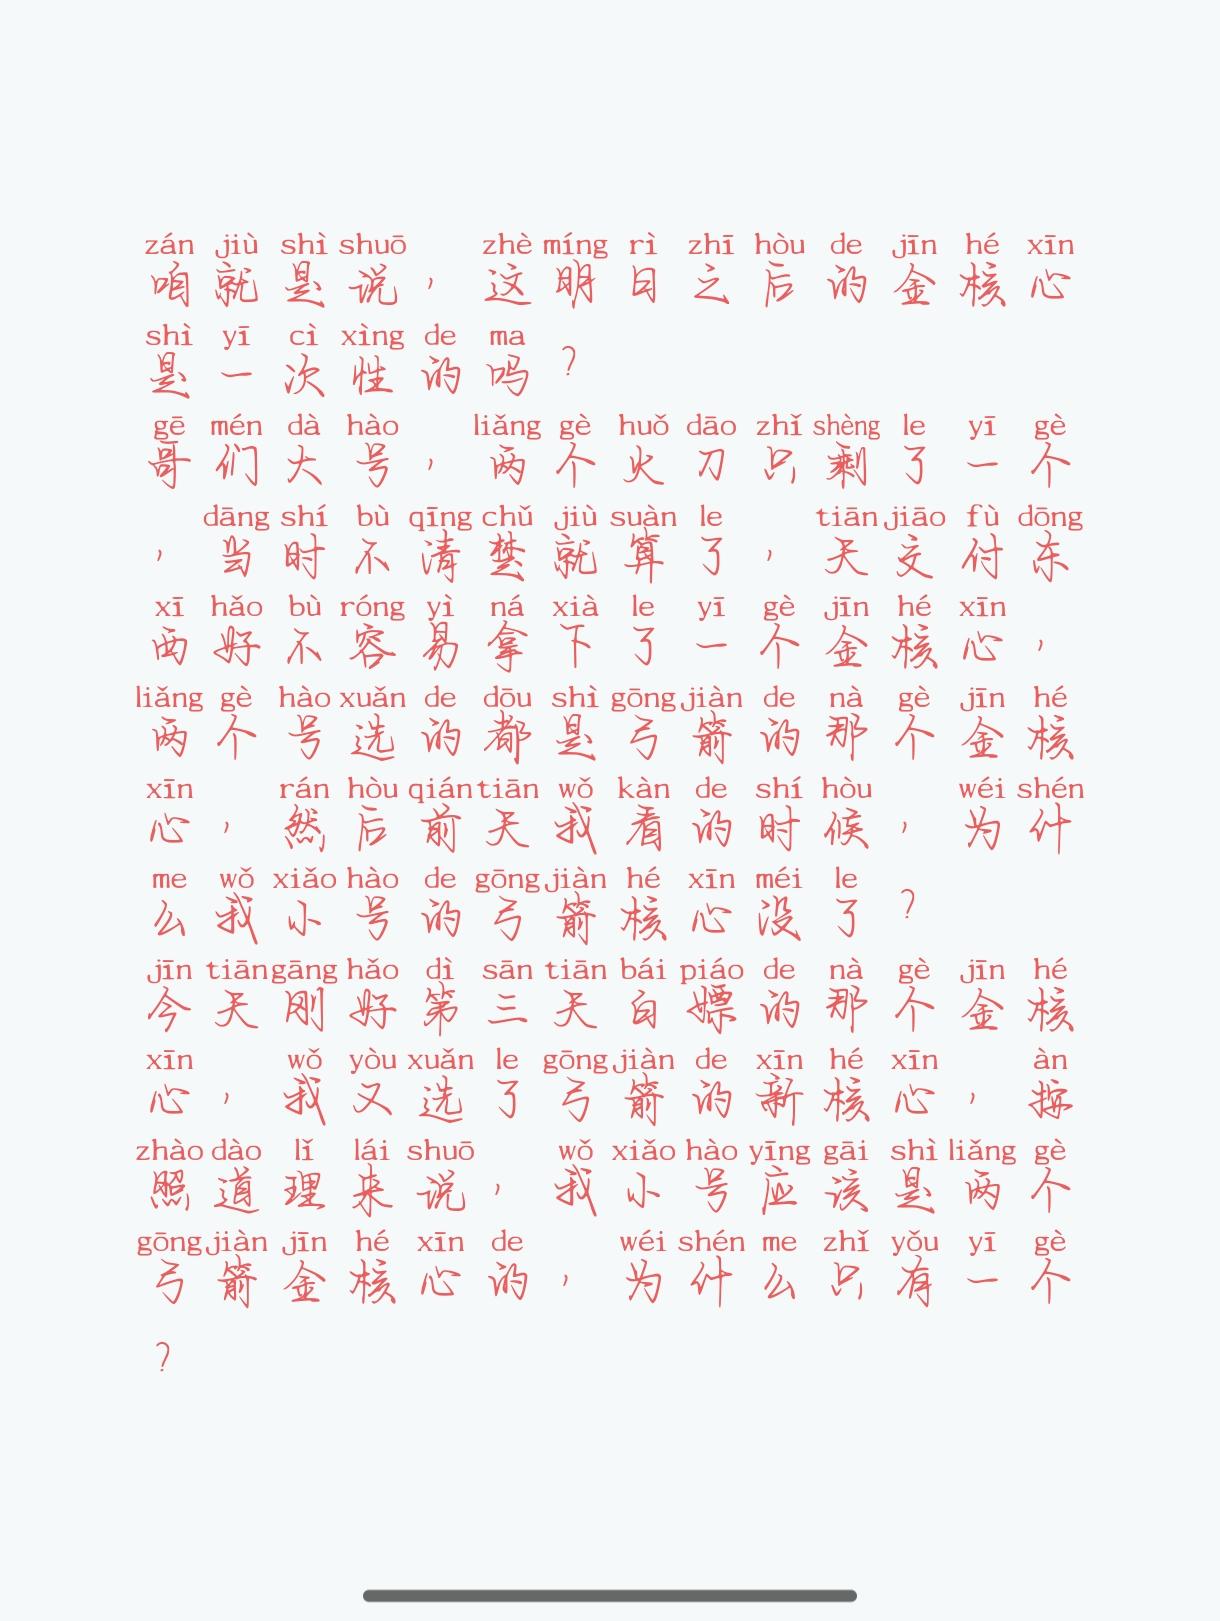 zán jiù shì shuō zhè míng rì zhī hòu de jīn hé xīn
咱就是说，这明日之后的金核心
shì yī cì xìng de ma
是一次性的吗？
gē mén dà hào liǎng gè huǒ dāo zhǐ shèng le yī gè
哥们大号，两个火刀只剩了一个
dāng shí bù qīng chǔ jiù suàn le tiān jiāo fù dōng
，当时不清楚就算了，天交付东
xī hǎo bù róng yì ná xià le yī gè jīn hé xīn
西好不容易拿下了一个金核心，
liǎng gè hào xuǎn de dōu shì gōng jiàn de nà gè jīn hé
两个号选的都是弓箭的那个金核
xīn rán hòu qián tiān wǒ kàn de shí hòu wéi shén
心，然后前天我看的时候，为什
me wǒ xiǎo hào de gōng jiàn hé xīn méi le
么我小号的弓箭核心没了？
jīn tiān gāng hǎo dì sān tiān bái piáo de nà gè jīn hé
今天刚好第三天白嫖的那个金核
xīn wǒ yòu xuǎn le gōng jiàn de xīn hé xīn àn
心，我又选了弓箭的新核心，按
zhào dào lǐ lái shuō wǒ xiǎo hào yīng gāi shì liǎng gè
照道理来说，我小号应该是两个
gōng jiàn jīn hé xīn de wéi shén me zhǐ yǒu yī gè
弓箭金核心的，为什么只有一个
？